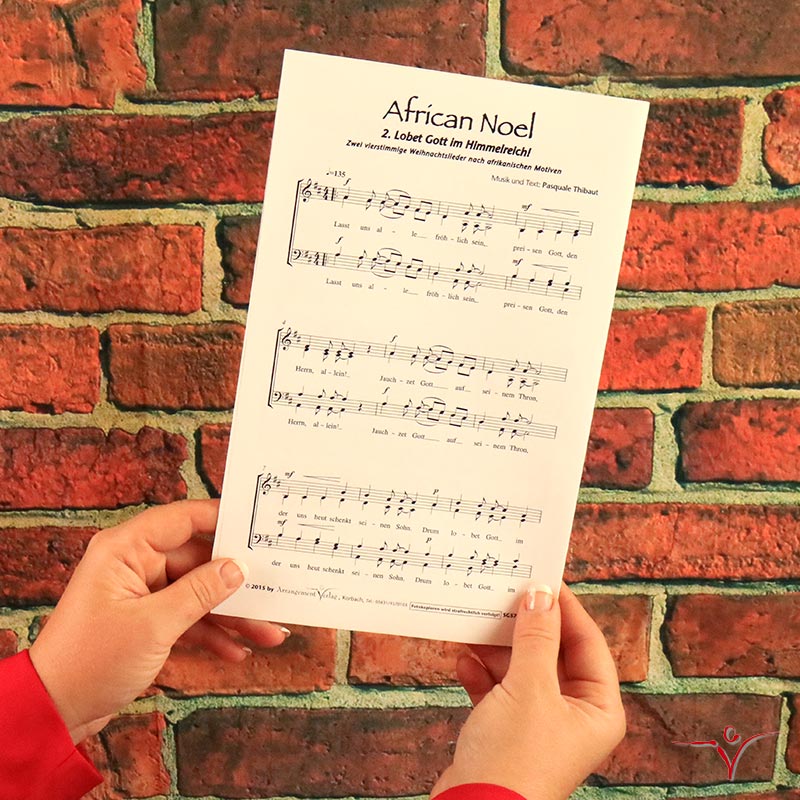 African Noel
2. Lobet Gott im Himmelreich!
Zwei vierstimmige Weihnachtslieder nach afrikanischen Motiven
Musik und Text: Pasquale Thibaut
♩=135
f
mf
Lasst uns al - le fröh - lich sein, prei - sen Gott, den
f
mf
Lasst uns al - le fröh - lich sein, prei - sen Gott, den
4
f
Herrn, al - lein! Jauch - zet Gott auf sei - nem Thron,
f
Herrn, al - lein! Jauch - zet Gott auf sei - nem Thron,
7
mf
p
der uns heut schenkt sei - nen Sohn. Drum lo - bet Gott im
mf
p
der uns heut schenkt sei - nen Sohn. Drum lo - bet Gott im
© 2015 by Arrangement Verlag, Korbach, Tel.: Fotokopieren wird strafrechtlich verfolgt!